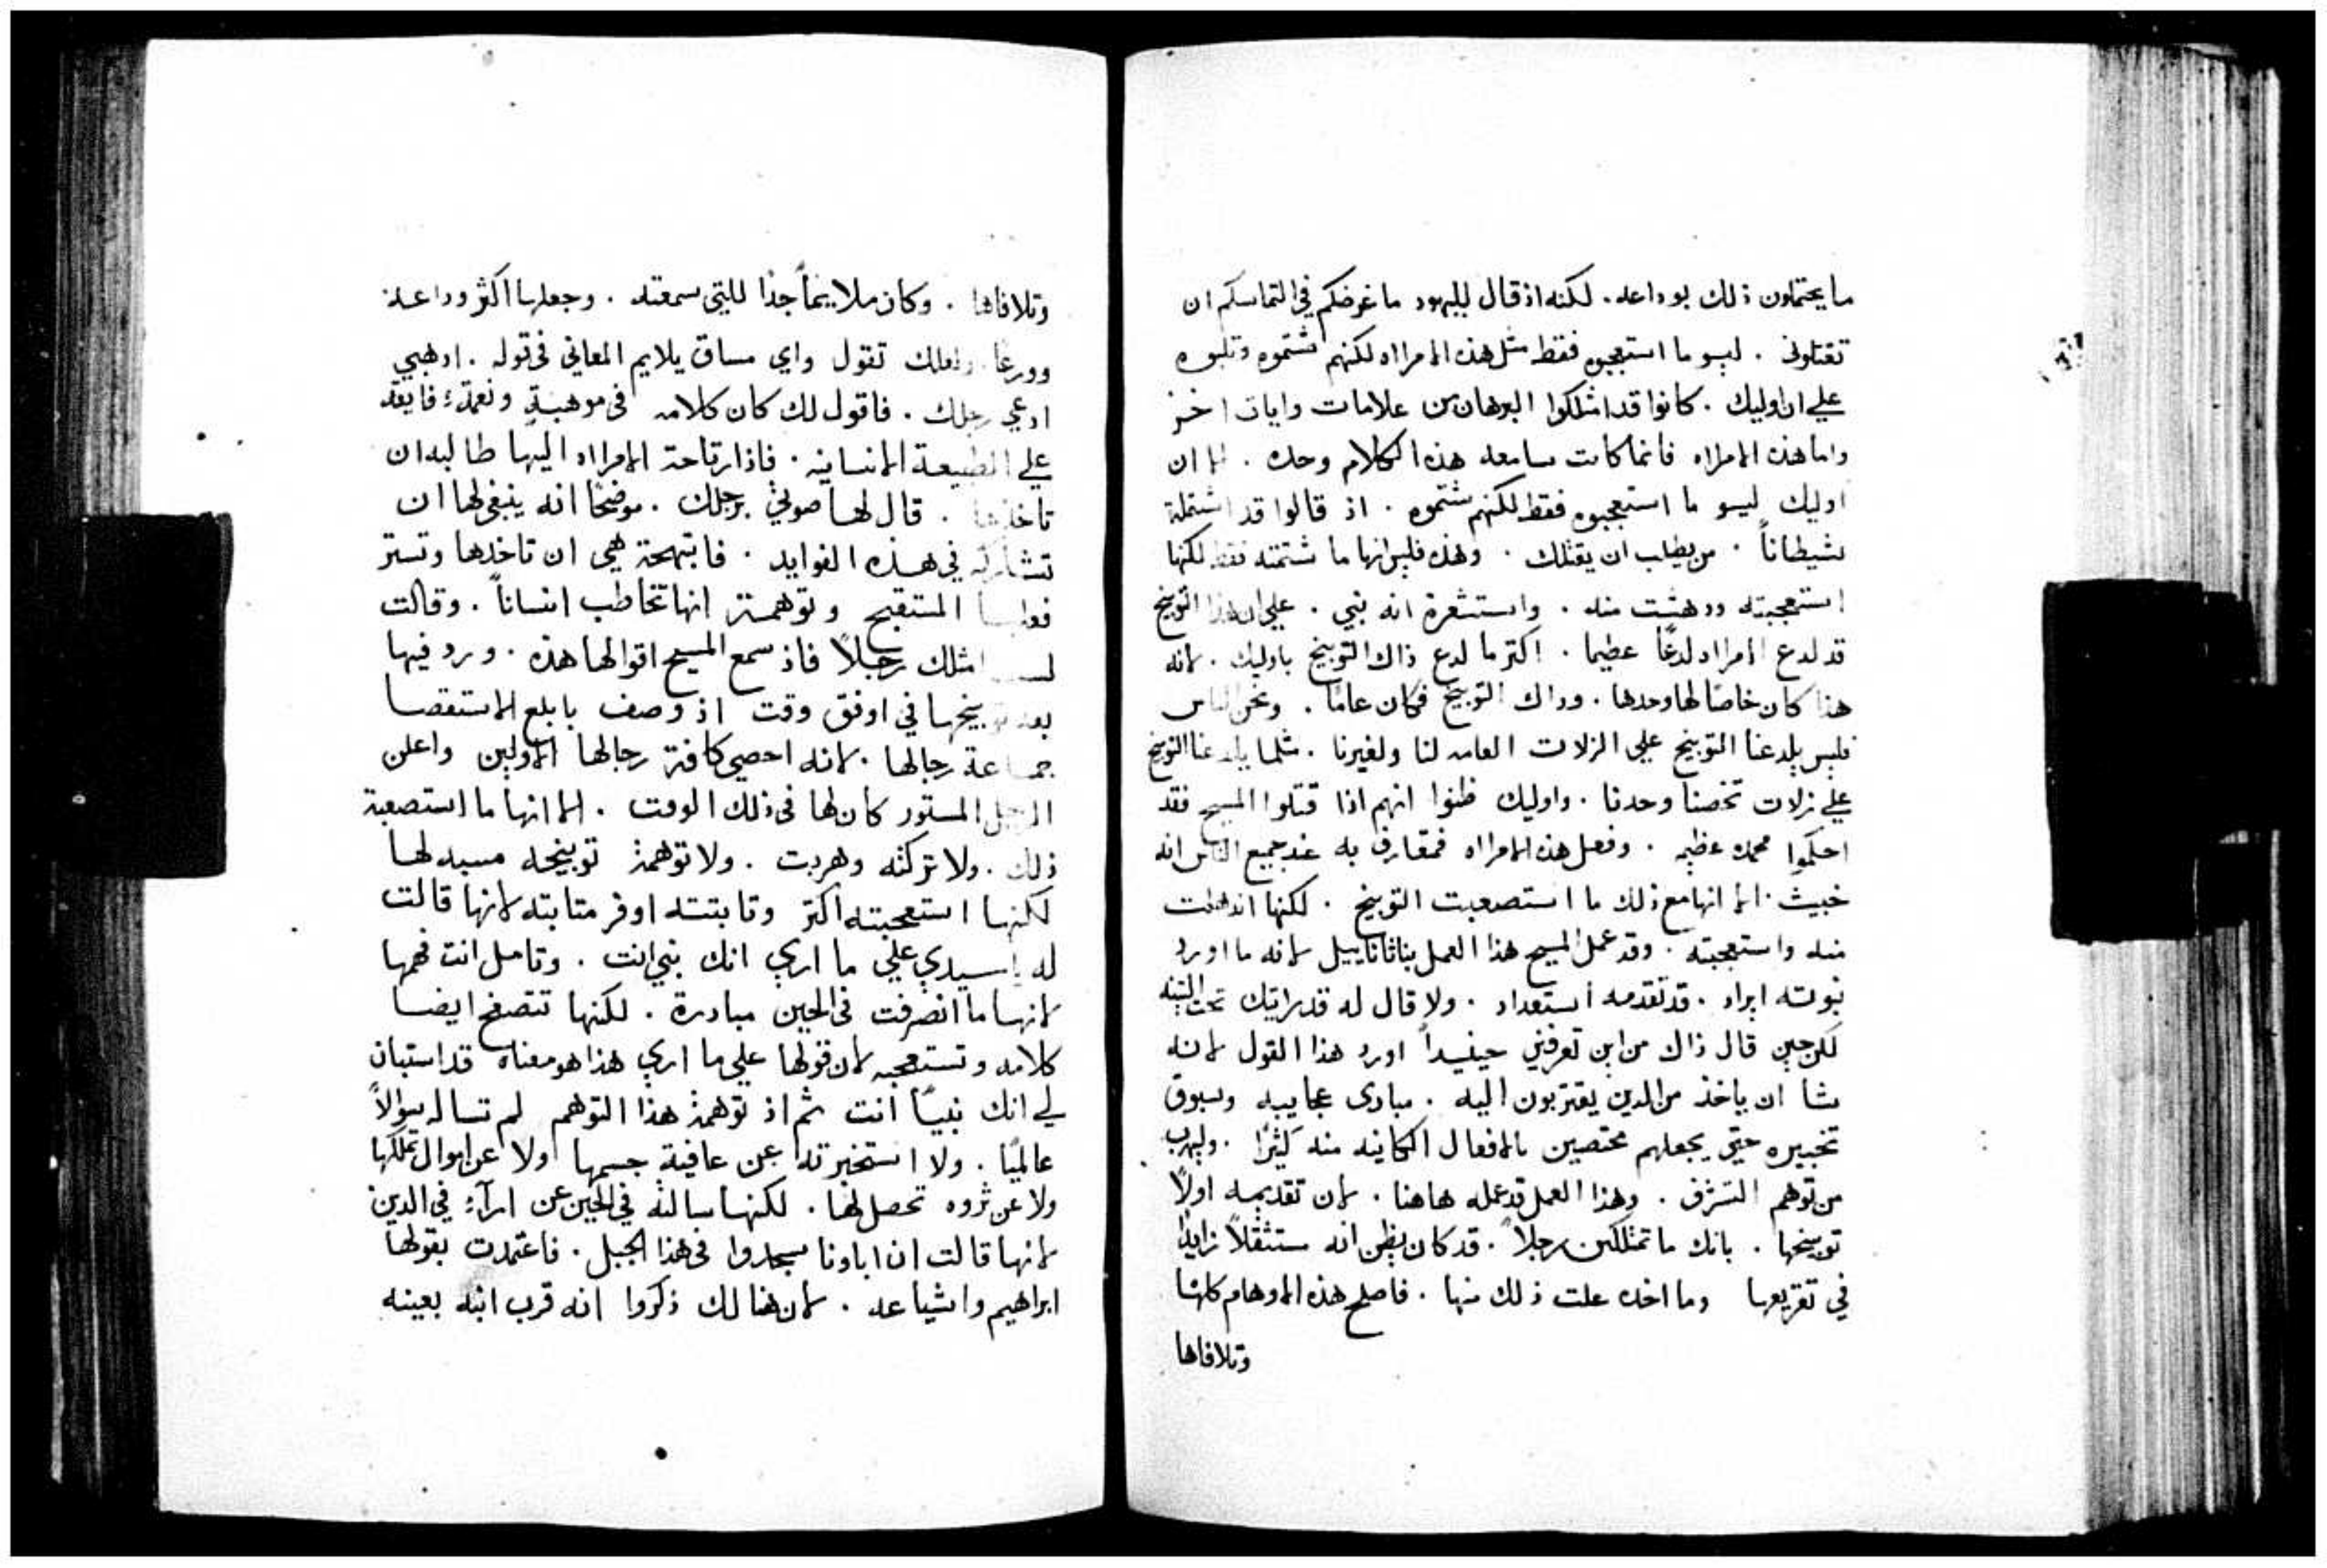 ما يحتملون ذلك بوداعه . لكنه اذ قال لليهود ما غرضكم في التماسكم ان
تقتلوني . ليس ما استعجبوه فقط مثل هذه الامراه لكنهم شتموه وثلبوه
علي ان اوليك . كانوا قد امتلكوا البرهان من علامات وايات اخر
واما هذه الامراه فانما كانت سامعه هذا الكلام وحده . الا ان
اوليك ليس ما استعجبوه فقط لكنهم شتموه . اذ قالوا قد اشتملة
شيطاناً . من يطلب ان يقتلك . وهذه فليس انها ما شتمته فقط لكنها
استعجبته ودهشت منه . واستشعرة انه نبي . علي ان هذا التوبيخ
قد لدع الامراه لدغًا عظيما . اكتر ما لدع ذاك التوبيخ باوليك . لانه
هذا كان خاصًا لها وحدها . وداك التوبيخ فكان عامًا . ونحن الناس
فليس يلدغنا التوبيخ علي الزلات العامه لنا ولغيرنا . مثلما يلدغنا التوبيخ
علي زلات تخصنا وحدنا . واوليك ظنوا انهم اذا قتلوا المسيح فقد
احكموا محمده عظيمه . وفعل هذه الامراه فمقارف به عند جميع الناس انه
خبيث . الا انها مع ذلك ما استصعبت التوبيخ . لكنها اندهلت
منه واستعجبته . وقد عمل المسيح هذا العمل بناثاناييل لانه ما اورد
نبوته ايراد . قد تقدمه استعداد . ولا قال له قد رايتك تحت التينه
لكن حين قال ذاك من اين تعرفني حينيداً اورد هذا القول لانه
شا ان ياخذ من الدين يقتربون اليه . مبادى عجايبه وسبوق
تخبيره حتي يجعلهم مختصين بالافعال الكاينه منه كثيرًا . وليهرب
من توهم التشرف . وهذا العمل قد عمله هاهنا . لان تقديمه اولاً
توبيخها . بانك ما تمتلكين رجلاً . قد كان يظن انه مستثقلاً زايدًا
في تقريعها وما اخده علت ذلك منها . فاصلح هذه الاوهام كلها
وتلافاها
وتلافاها . وكان ملايمًا جدًا للتي سمعته . وجعلها اكثر وداعة
وورعًا ولعلك تقول واي مساق يلايم المعاني في قوله . ادهبي
ادعي رجلك . فاقول لك كان كلامه في موهبةٍ ونعمةٍ فايقة
علي الطبيعة الانسانيه . فاذا رتاحة الامراه اليها طالبه ان
تاخذها . قال لها صوتي برجلك . موضحًا انه ينبغي لها ان
تشاركه في هذه الفوايد . فابتهجة هي ان تاخدها وتستر
فعلها المستقبح وتوهمة انها تخاطب انساناً . وقالت
لست امتلك رجلاً فاذ سمع المسيح اقوالها هذه . ورد فيها
بعد توبيخها في اوفق وقت اذ وصف بابلغ الاستقصا
جماعة رجالها . لانه احصي كافة رجالها الاولين واعلن
الرجل المستور كان لها في ذلك الوقت . الا انها ما استصعبة
ذلك . ولا تركته وهربت . ولا توهمة توبيخه مسبه لها
لكنها استعجبته اكتر وثابتته اوفر مثابته لانها قالت
له يا سيدي علي ما اري انك نبي انت . وتامل انت فهمها
لانها ما انصرفت في الحين مبادرة . لكنها تتصفح ايضا
كلامه وتستعجبه لان قولها علي ما اري هذا هو معناه قد استبان
لي انك نبيًا انت ثم اذ توهمة هذا التوهم لم تساله سوالاً
عالميًا . ولا استخبرته عن عافية جسمها ولا عن اموال تملكها
ولا عن ثروه تحصل لها . لكنها سالته في الحين عن ارآءٍ في الدين
لانها قالت ان اباونا سجدوا في هذا الجبل . فاعتمدت بقولها
ابراهيم واشياعه . لان هنالك ذكروا انه قرب ابنه بعينه